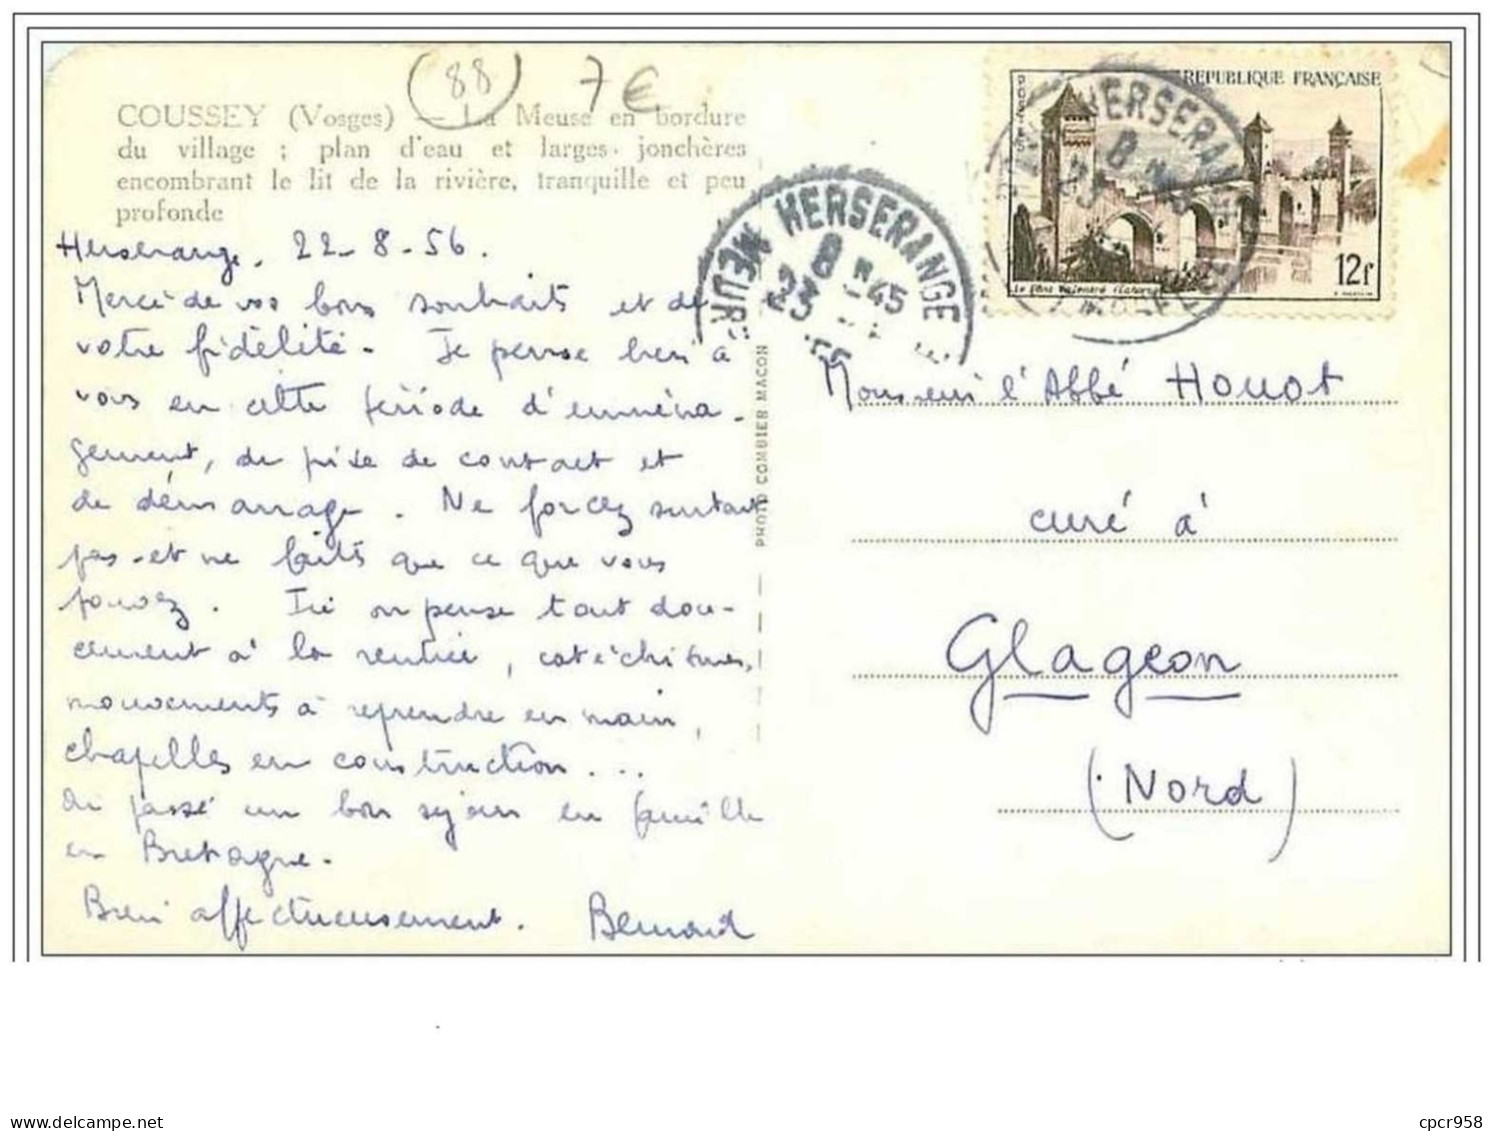 (88) 7€
COUSSEY (Vosges) — La Meuse en bordure
du village ; plan d'eau et larges jonchères
encombrant le lit de la rivière, tranquille et peu
profonde
Herserange, 22-8-56.
Merci de vos bons souhaits et de
votre fidélité. Je pense bien à
vous en cette période d'emména-
gement, de prise de contact et
de démarrage. Ne forcez surtout
pas et ne faites que ce que vous
pouvez. Ici on pense tout dou-
cement à la rentrée, catéchismes,
mouvements à reprendre en main,
chapelles en construction...
Ai passé un bon séjour en famille
en Bretagne.
Bien affectueusement. Bernard
PHOTO COMBIER MACON
HERSERANGE
8 H 45
23
REPUBLIQUE FRANÇAISE
POSTES
Le Pont Valentré (Cahors)
12f
HERSERANGE
8
23
Monsieur l'Abbé Houot
curé à
Glageon
(Nord)
cpcr958